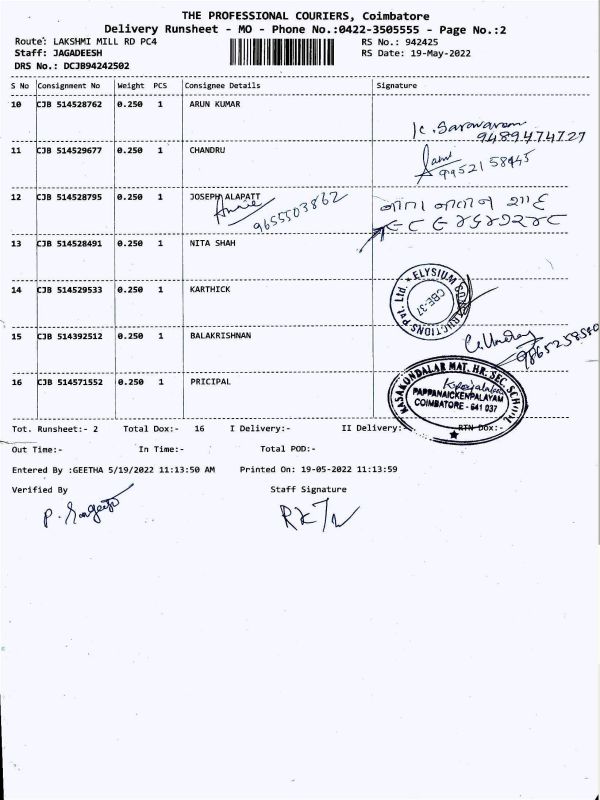 THE PROFESSIONAL COURIERS, Coimbatore
Delivery Runsheet - MO - Phone No.:0422-3505555 - Page No.:2
Route: LAKSHMI MILL RD PC4
RS No.: 942425
Staff: JAGADEESH
RS Date: 19-May-2022
DRS No.: DCJB94242502
S No Consignment No Weight PCS Consignee Details Signature
10 CJB 514528762 0.250 1 ARUN KUMAR
K. Saravanan
9489474727
11 CJB 514529677 0.250 1 CHANDRU
9952158445
12 CJB 514528795 0.250 1 JOSEPH ALAPATT
9655503862
13 CJB 514528491 0.250 1 NITA SHAH
14 CJB 514529533 0.250 1 KARTHICK
ELYSIUM CONSTRUCTIONS Pvt. Ltd. * CBE-37
15 CJB 514392512 0.250 1 BALAKRISHNAN
16 CJB 514571552 0.250 1 PRICIPAL
KASAKONDALAR MAT. HR. SEC. SCHOOL
PAPPANAICKENPALAYAM
COIMBATORE - 641 037
Tot. Runsheet:- 2 Total Dox:- 16 I Delivery:- II Delivery:- RTN Dox:-
Out Time:- In Time:- Total POD:-
Entered By :GEETHA 5/19/2022 11:13:50 AM Printed On: 19-05-2022 11:13:59
Verified By Staff Signature